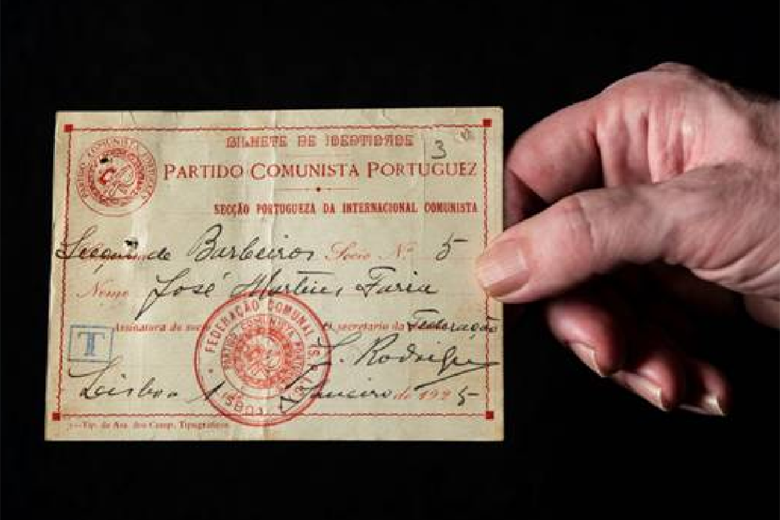 BILHETE DE IDENTIDADE
3
PARTIDO COMUNISTA PORTUGUEZ
SECÇÃO PORTUGUEZA DA INTERNACIONAL COMUNISTA
PARTIDO COMUNISTA
de Barbeiros Socio Nº 5
Nome José Martins Faria
Assinatura do socio O secretario da Federação
T
FEDERAÇÃO COMUNAL
PARTIDO COMUNISTA
LISBOA
Lisboa 1 Janeiro de 1925
Tip. da Ass. dos Comp. Tipograficos